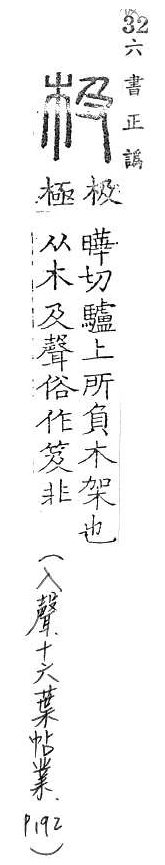 32
六書正譌
极
极極
曄切驢上所負木架也
从木及聲俗作笈非
(入聲.十六葉帖業.P192)